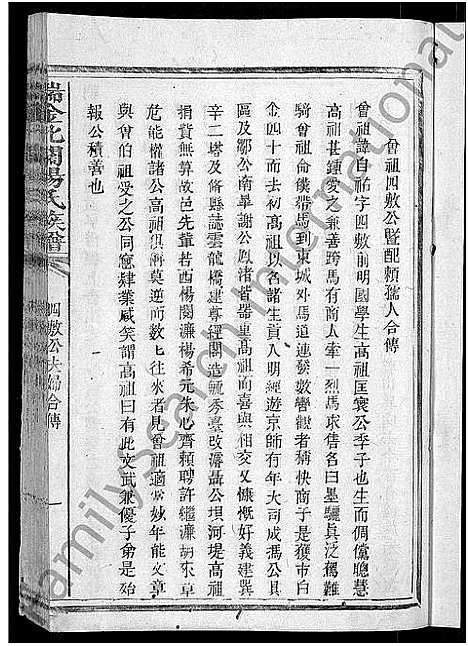 曾祖四敷公暨配賴孺人合傳
曾祖諱自祐字四敷前明國學生高祖匡寰公季子也生而倜儻聰慧
高祖甚鍾愛之兼善跨馬有商人牽一烈馬求售名曰墨驪真泛駕難
騎曾祖命僕帶馬到東城外馬道連發數轡觀者稱快商于是獲市白
金四十而去初高祖以名諸生貢入明經遊京師有年大司成馮公具
區及鄒公南皋謝公鳳渚皆器重高祖而喜與相交又慷慨好義建巽
辛二塔及脩縣誌雲龍橋建尊經閣造毓秀臺改濬聶公坝河堤高祖
捐貲無算故邑先輩若西楊閱濂楊希元朱心齊賴聘許繼濂胡
危能權諸公高祖俱滸莫逆而數七往來者見曾祖適當妙年能文章
與曾伯祖受之公同窓肄業咸笑謂高祖曰有此文武兼優子弟是殆
報公積善也
瑞金北關楊氏族譜
四敷公夫婦合傳
一
familysearch International